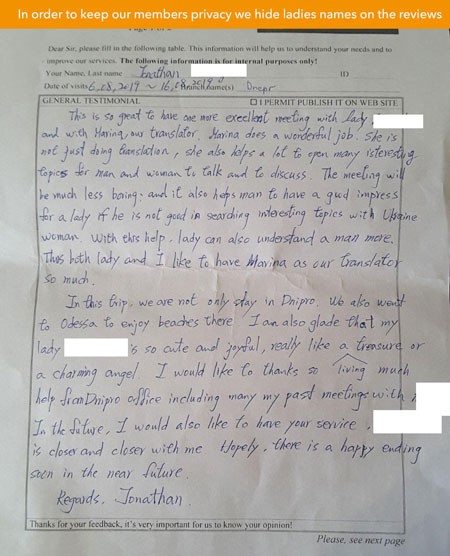 In order to keep our members privacy we hide ladies names on the reviews
Dear Sir, please fill in the following table. This information will help us to understand your needs and to
improve our services. The following information is for internal purposes only!
Your Name, Last name Jonathan ID
Date of visits 6,08,2019 ~ 16,08,2019 Dnepr
GENERAL TESTIMONIAL □ I PERMIT PUBLISH IT ON WEB SITE
This is so great to have one more excellent meeting with lady,
and with Marina, our translator. Marina does a wonderful job. She is
not just doing translation, she also helps a lot to open many interesting
topics for man and woman to talk and to discuss. The meeting will
be much less boring. and it also helps man to have a good impress
for a lady if he is not good in searching interesting topics with Ukraine
woman. With this help. lady can also understand a man more.
Thus both lady and I like to have Marina as our translator
so much.
In this trip, we are not only stay in Dnipro. We also went
to Odessa to enjoy beaches there. I am also glade that my
lady is so cute and joyful, really like a treasure or
a charming angel. I would like to thanks so living much
help from Dnipro office including many my past meetings with
In the future, I would also like to have your service,
is closer and closer with me Hopely, there is a happy ending
soon in the near future.
Regards, Jonathan.
Thanks for your feedback, it's very important for us to know your opinion!
Please, see next page